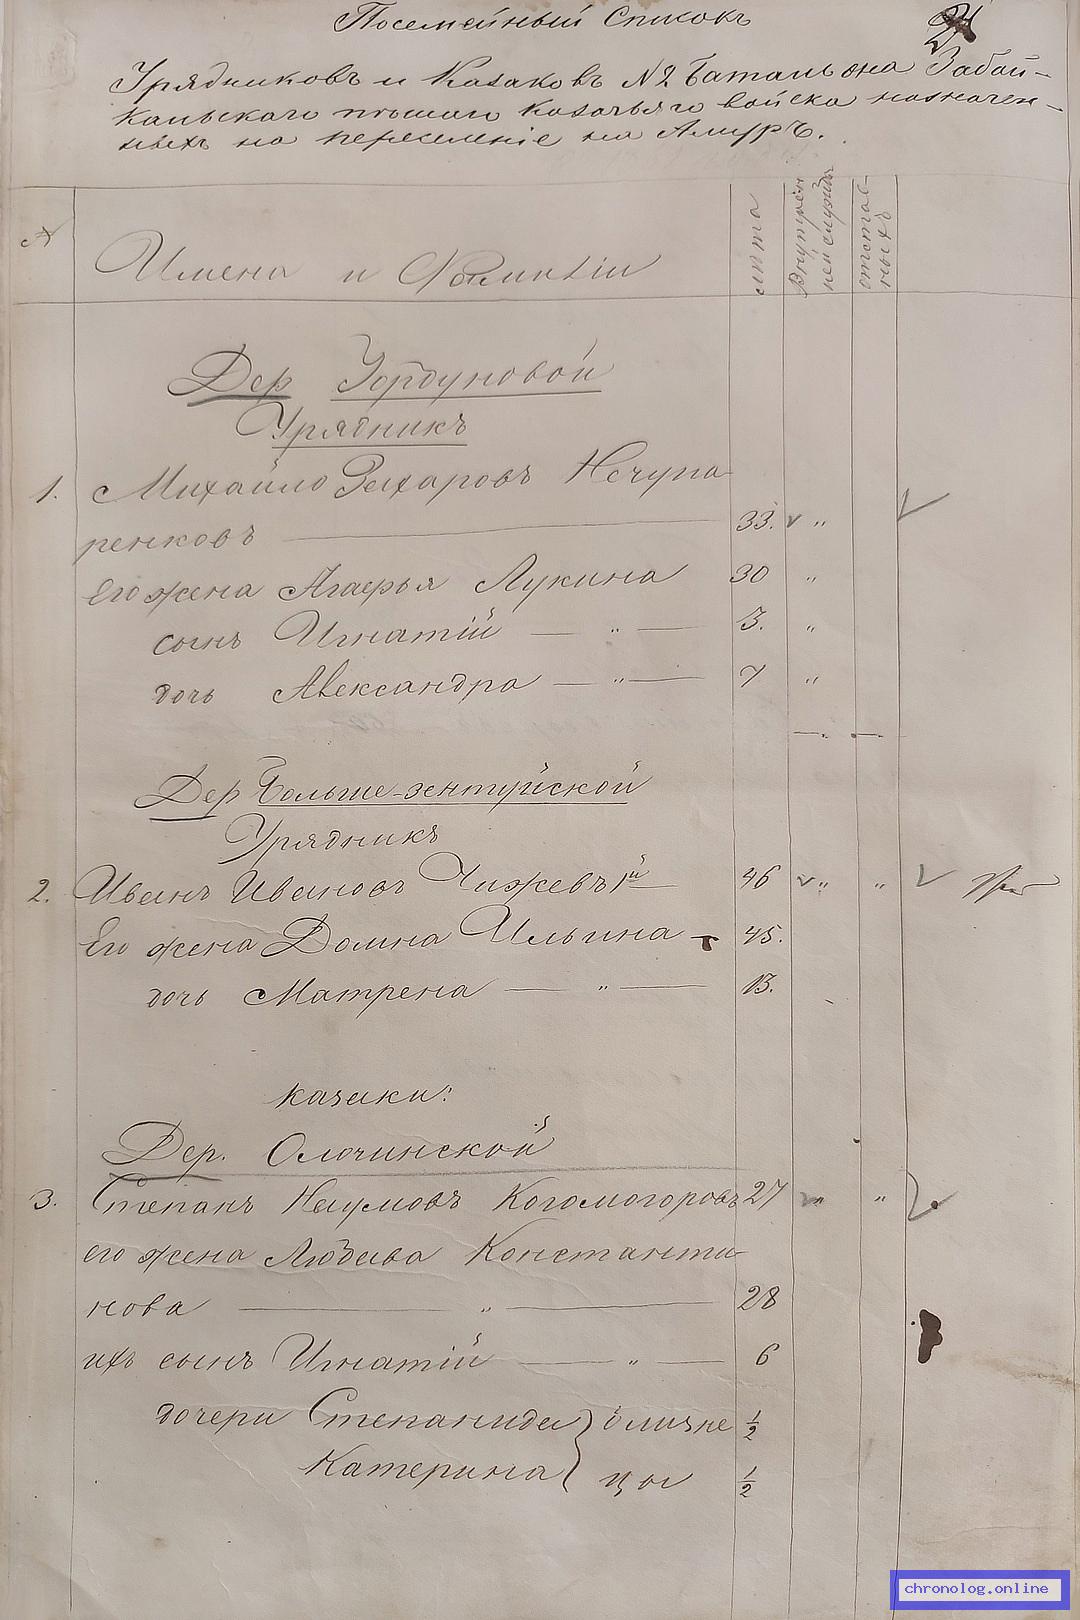 Посемейный Списокъ
Урядниковъ и Казаковъ №2 Баталіона Забай-
кальскаго пѣшаго Казачьяго войска назначен-
ныхъ на переселеніе на Амуръ.
№
Имена и Фамиліи
лѣта
Внутрен
ней служб
отстав-
ныхъ
Дер
Урядникъ
1. Михайло Захаровъ Нечупа-
ренковъ 33. v „
его жена Агафья Лукина 30 „
сынъ Игнатій — „ — 3. „
дочь Александра — „ — 7 „
Дер Больше-
Урядникъ
2. Иванъ Ивановъ Чижевъ 1й 46 v „ „
Его жена Домна Ильина 45.
дочь Матрена — „ — 13.
казаки:
Дер. Олочинской
3. Степанъ Наумовъ Когомогоровъ 27 „
его жена Любава Константи-
нова — „ — 28
ихъ сынъ Игнатій — „ — 6
дочери Степанида } близне 1/2
Катерина } цы 1/2
chronolog.online